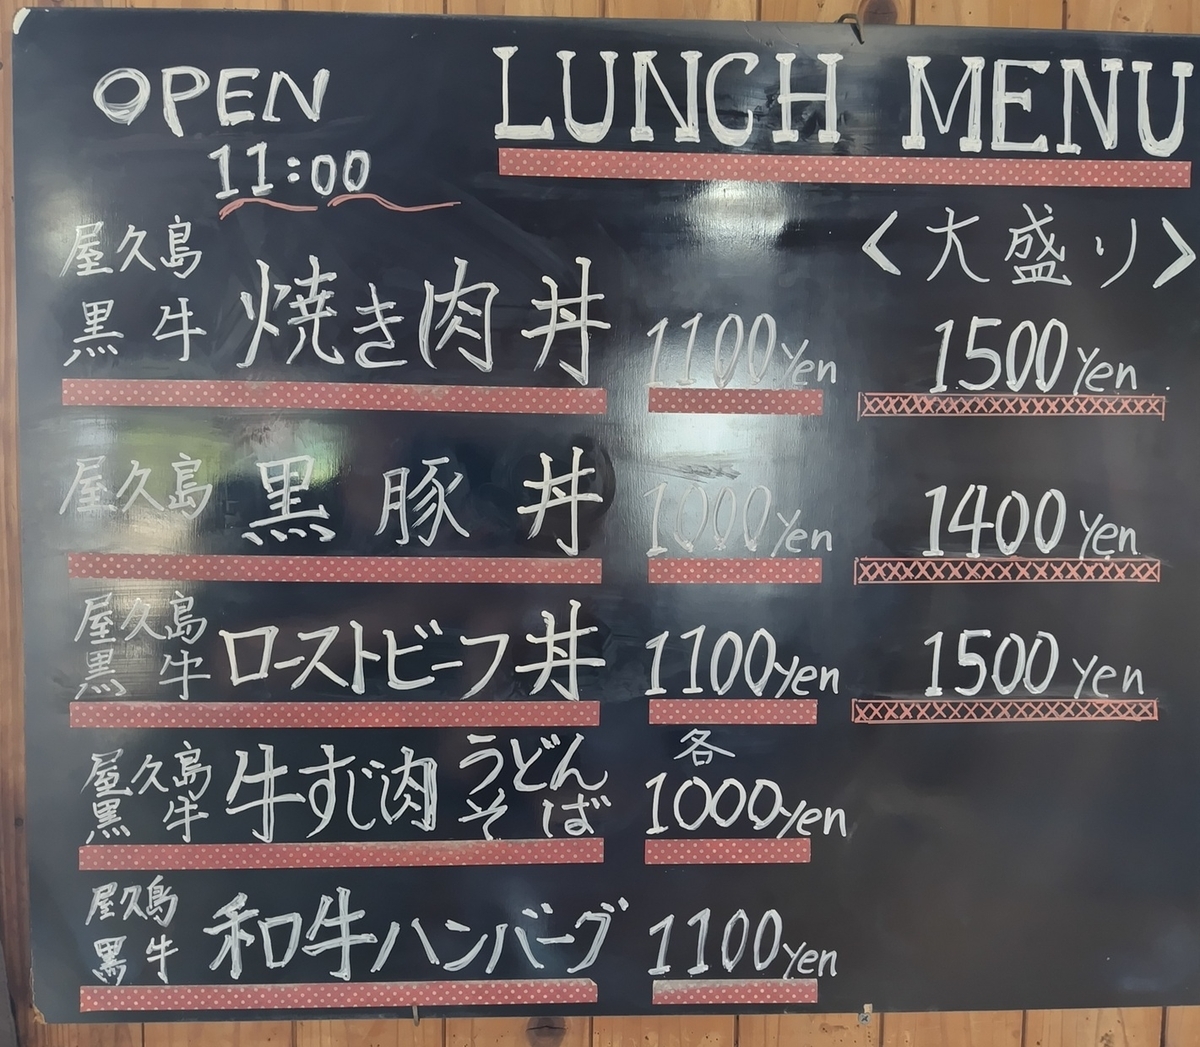 OPEN
11:00
LUNCH MENU
<大盛り>
屋久島
黒牛 焼き肉丼 1100yen 1500yen
屋久島 黒豚丼 1000yen 1400yen
屋久島
黒牛 ローストビーフ丼 1100yen 1500yen
屋久島
黒牛 牛すじ肉 うどん
そば 各
1000yen
屋久島
黒牛 和牛ハンバーグ 1100yen